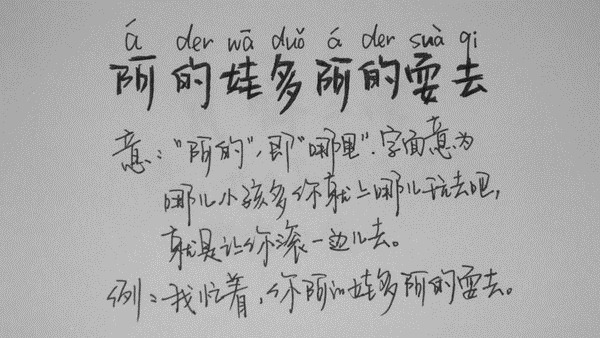 á der wā duǒ á der suà qi
阿的娃多阿的耍去
意:“阿的”,即“哪里”.字面意为
哪儿小孩多你就上哪儿玩去吧,
就是让你滚一边儿去。
例:我忙着,你阿的娃多阿的耍去。